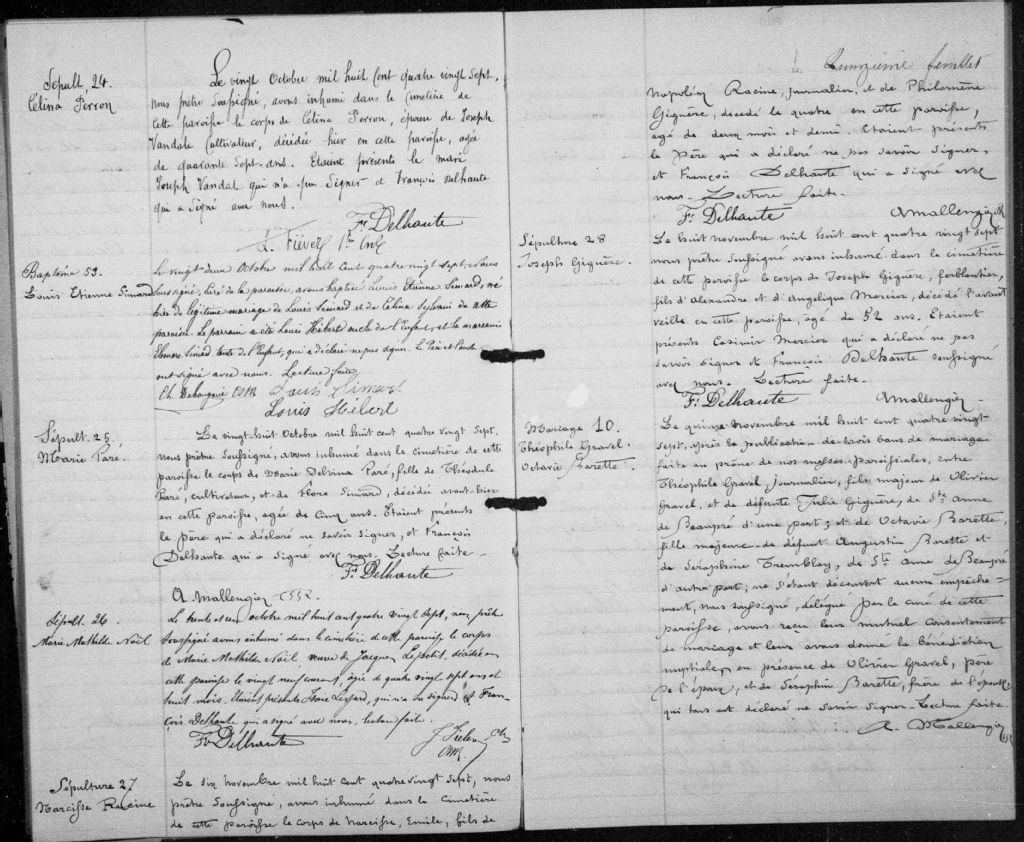 Sépult. 24.
Célina Perron
Le vingt Octobre mil huit Cent quatre vingt Sept.
Nous prêtre Soussigné, avons inhumé dans le Cimetière de
Cette paroisse le corps de Célina Perron, épouse de Joseph
Vandale Cultivateur, décédée hier en cette paroisse, agée
de quarante Sept-ans. Etaient présents le mari
Joseph Vandal qui n'a pu Signer et François Delhaute
qui a Signé avec nous.
Fr Delhaute
L. Tiévez Ptre Curé
Baptême 53.
Louis Etienne Simard
Le vingt-deux Octobre mil huit Cent quatre vingt Sept, Nous
Soussigné, Curé de la paroisse, avons baptisé Louis Etienne Simard, né
hier du légitime mariage de Louis Simard et de Célina de cette
paroisse. Le parrain a été Louis Hébert oncle de l'Enfant, et la marraine
Elmore Simard tante de l'Enfant, qui a déclaré ne pas signer. Le Père et l'oncle
ont signé avec nous. Lecture faite
Louis Simard
Louis Hébert
Sépult. 25
Marie Paré.
Le vingt-huit Octobre mil huit cent quatre vingt Sept,
nous prêtre Soussigné, avons inhumé dans le cimetière de cette
paroisse le corps de Marie Delvina Paré, fille de Théodule
Paré, cultivateur, et de Flore Simard, décédée avant-hier
en cette paroisse, agée de Cinq ans. Etaient présents
le Père qui a déclaré ne savoir Signer, et François
Delhaute qui a Signé avec nous. Lecture faite -
Fr Delhaute
A Mallengiez CSSR.
Sépult. 26.
Marie Mathilde Noël
Le trente et un Octobre mil huit cent quatre vingt Sept, nous, prêtre
Soussigné avons inhumé dans le cimetière de cette paroisse le corps
de Marie Mathilde Noël, veuve de Jacques Lepetit, décédée en
cette paroisse le vingt neuf courant, âgée de quatre vingt sept ans et
huit mois. Etaient présents Isaïe Lessard, qui n'a su signer et Fran-
çois Delhaute qui a signé avec nous, lecture faite.
Fr Delhaute
Sépulture 27
Narcisse Racine
Le six novembre mil huit cent quatre vingt Sept, nous
prêtre Soussigné, avons inhumé dans le Cimetière
de cette paroisse le corps de Narcisse, Emile, fils de
feuillet
Napoléon Racine, Journalier, et de Philomène
Giguère, décédé le quatre en cette paroisse,
agé de deux mois et demi. Etaient présents
le Père qui a déclaré ne pas savoir Signer,
et François Delhaute qui a Signé avec
nous. Lecture faite.
Fr Delhaute
A Mallengiez
Sépulture 28
Joseph Giguère.
Le huit novembre mil huit cent quatre vingt Sept
nous prêtre Soussigné avons inhumé dans le cimetière
de cette paroisse le corps de Joseph Giguère, ferblantier,
fils d'Alexandre et d'Angelique Mercier, décédé l'avant
veille en cette paroisse, agé de 52 ans. Etaient
présents Casimir Mercier qui a déclaré ne pas
savoir Signer et François Delhaute soussigné
avec nous. Lecture faite.
Fr Delhaute
A Mallengiez
Mariage 10.
Théophile Gravel.
Octavie Barette.
Le quinze novembre mil huit cent quatre vingt
sept, après la publication de trois bans de mariage
faite au prône de nos messes Paroissiales, entre
Théophile Gravel, Journalier, fils majeur de Olivier
Gravel, et de défunte Julie Giguère, de Ste Anne
de Beaupré d'une part; et de Octavie Barette,
fille majeure de défunt Augustin Barette et
de Séraphine Tremblay, de Ste Anne de Beaupré
d'autre part; ne s'étant découvert aucun empêche=
ment, nous soussigné, délégué par le curé de cette
paroisse, avons reçu leur mutuel consentement
de mariage et leur avons donné la bénédiction
nuptiale, en présence de Olivier Gravel, père
de l'époux, et de Séraphin Barette, frère de l'épouse
qui tous ont déclaré ne savoir Signer. Lecture faite.
A. Mallengiez